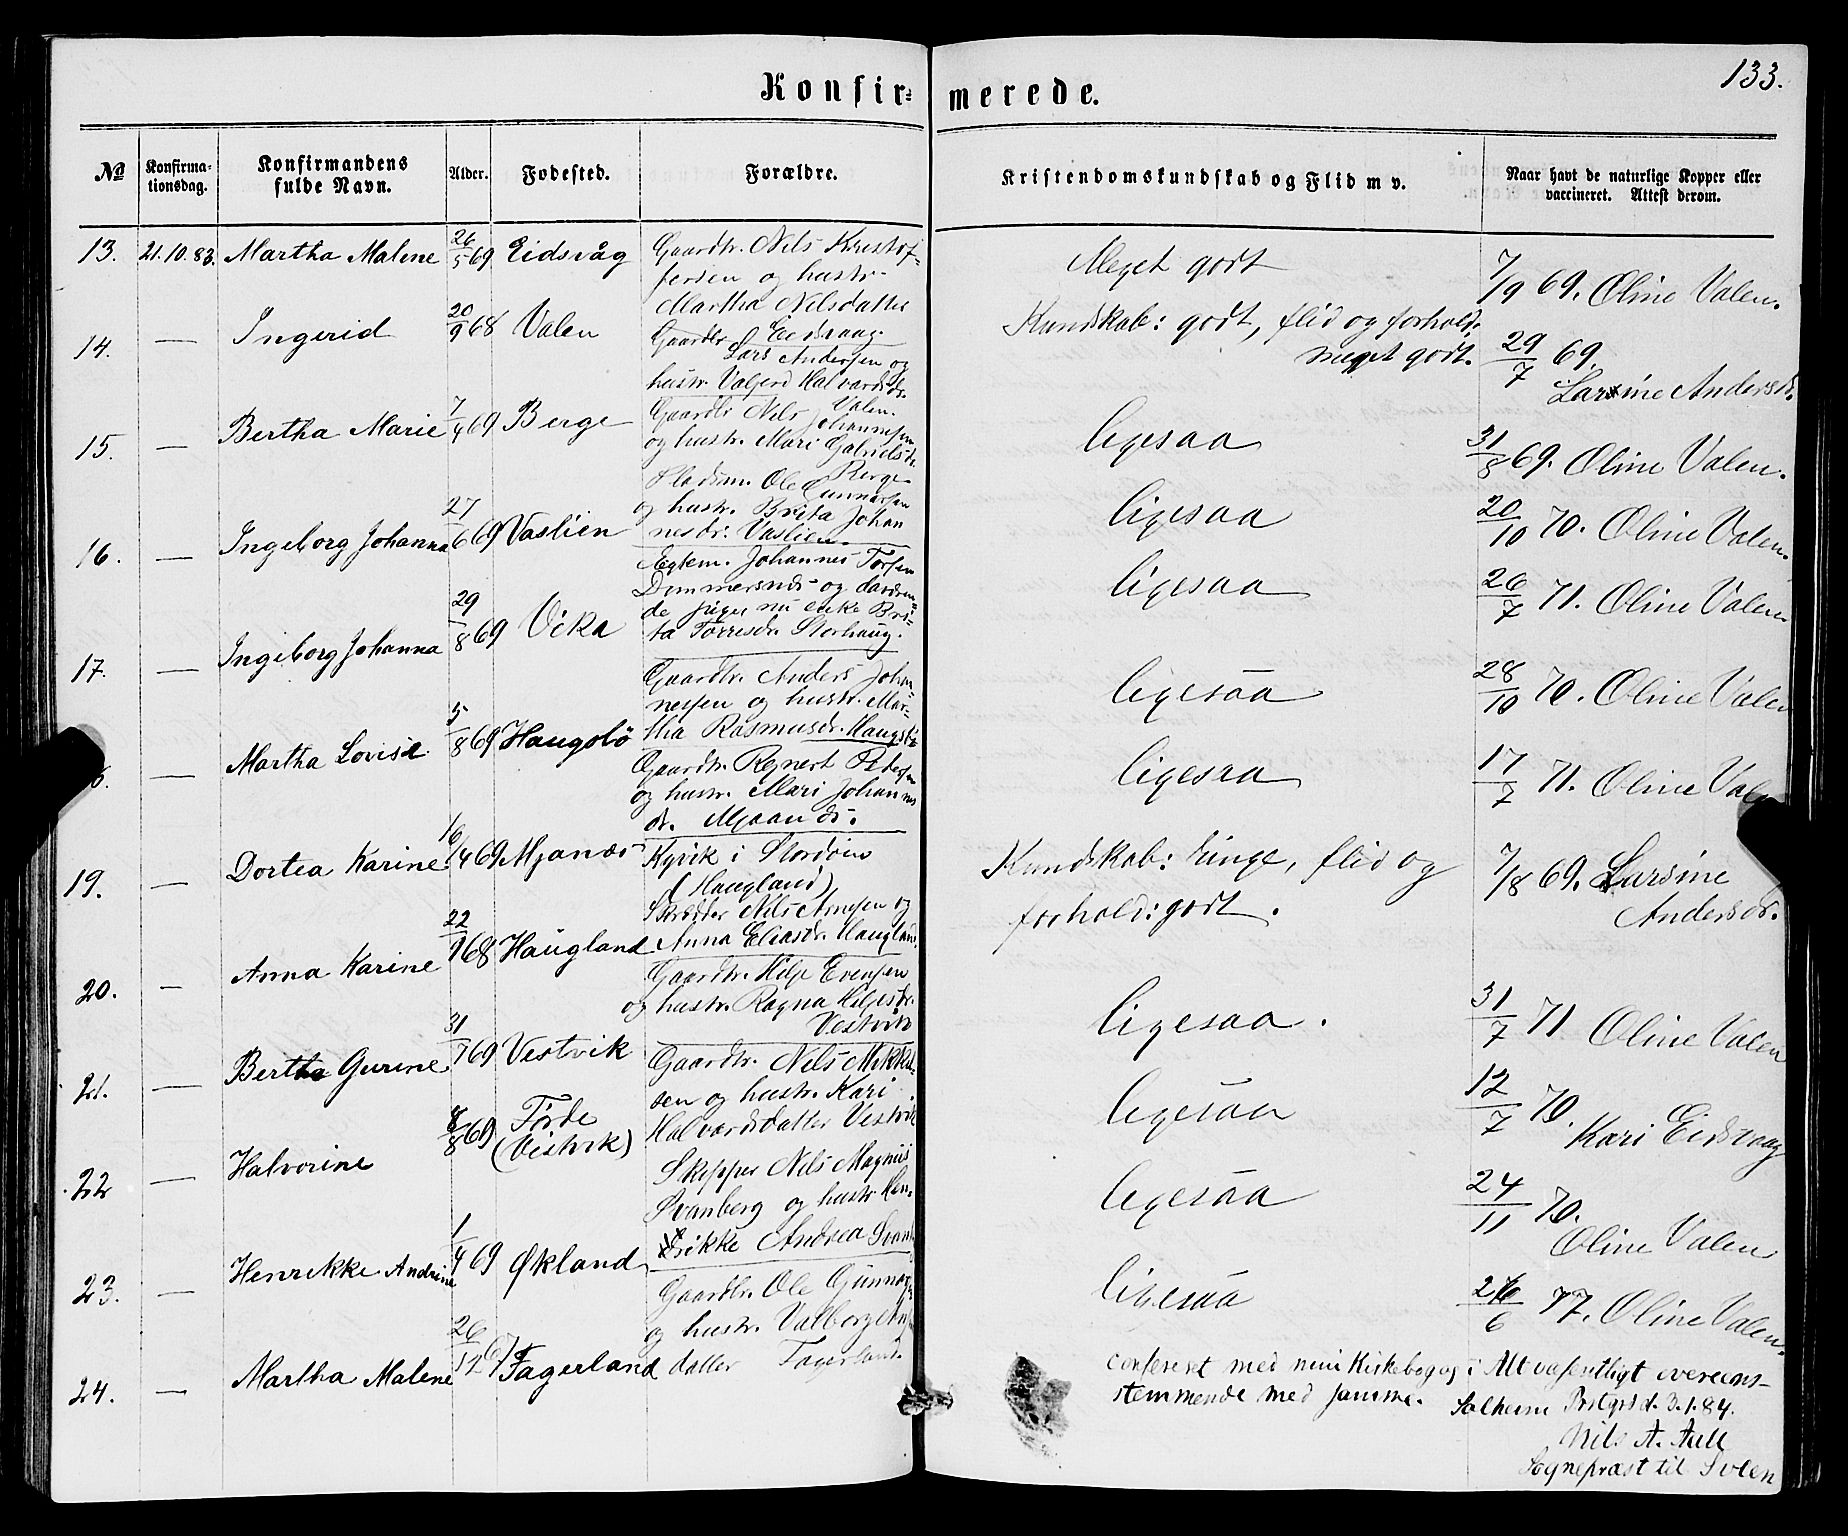 133.
Konfir- merede.
No
Konfirma-
tionsdag.
Konfirmandens
fulde Navn.
Alder.
Fødested.
Forældre.
Kristendomskundskab og Flid m v.
Naar havt de naturlige Kopper eller
vaccineret. Attest derom.
13. 21.10.83. Martha Malene 26/5 69 Eidsvåg
Gaardbr. Nils Kristof-
fersen og hustr.
Martha Nilsdatter
Eidsvaag.
Meget godt
7/9 69. Oline Valen.
14. — Ingerid 20/9 68 Valen
Gaardbr.
Lars Andersen og
hustr. Valgerd Halvardsd.
Valen.
Kundskab: godt, flid og forhold:
meget godt.
29/7 69.
Larsine Andersd.
15. — Bertha Marie 7/4 69 Berge
Gaardbr Nils Johannesen
og hustr. Mari Gabrielsdr.
Berge
ligesaa
31/8 69. Oline Valen.
16. — Ingeborg Johanna 27/6 69 Vaslien
Pladsm. Ole Gunnarsen
og hustr. Brita Johan
nesdr. Vaslien.
ligesaa
20/10 70. Oline Valen.
17. — Ingeborg Johanna 29/8 69 Vika
Egtem. Johannes Torsen
Dommersnes og daværen-
de pige nu enke Bri-
ta Torresdr. Storhaug.
ligesaa
26/7 71. Oline Valen.
— Martha Lovise 5/8 69 Haugslø
Gaardbr. Anders Johan-
nesen og hustr. Mar-
tha Rasmusdr. Haugslø
ligesaa
28/10 70. Oline Valen
19. — Dortea Karine 16/4 69 Mjanæs
Gaardbr. Regnert Peders
og hustr. Mari Johannes
dr. Mjaanæs.
ligesaa
17/7 71. Oline Valen
20. — Anna Karine 22/9 68 Haugland
Kyvik i Stordøen
(Haugland)
Skrædder Nils Arnesen og
Anna Eliasdr. Haugland.
Kundskab: ringe, flid og
forhold: godt.
7/8 69. Larsine
Andersdr.
21. — Bertha Gurine 31/7 69 Vestvik
Gaardbr. Helje Evensen
og hustr. Ragna Heljesdr.
Vestvik
ligesaa.
31/7 71 Oline Valen
22 — Halvorine 8/8 69 Førde
(Vestvik)
Gaardbr. Nils Mikkel-
sen og hustr. Kari
Halvardsdatter Vestvik
ligesaa
12/7 70.
Kari Eidsvaag
23. — Henrikke Andrine 1/4 69 Økland
Skipper Nils Magnus
Svanberg og hustr. Hen-
rikke Andrea Svanb.
ligesaa
24/11 70.
Oline Valen
24. — Martha Malene 26/12 67 Fagerland
Gaardbr. Ole Gunnars
og hustr. Valborg
datter Fagerland.
ligesaa
26/6 77. Oline Valen.
Confereret med min Kirkebog og i Alt væsentligt overens-
stemmende med samme.
Solheim Prstgrd d. 3.1.84.
Nils A. Aall
Sogneprest til Sveen